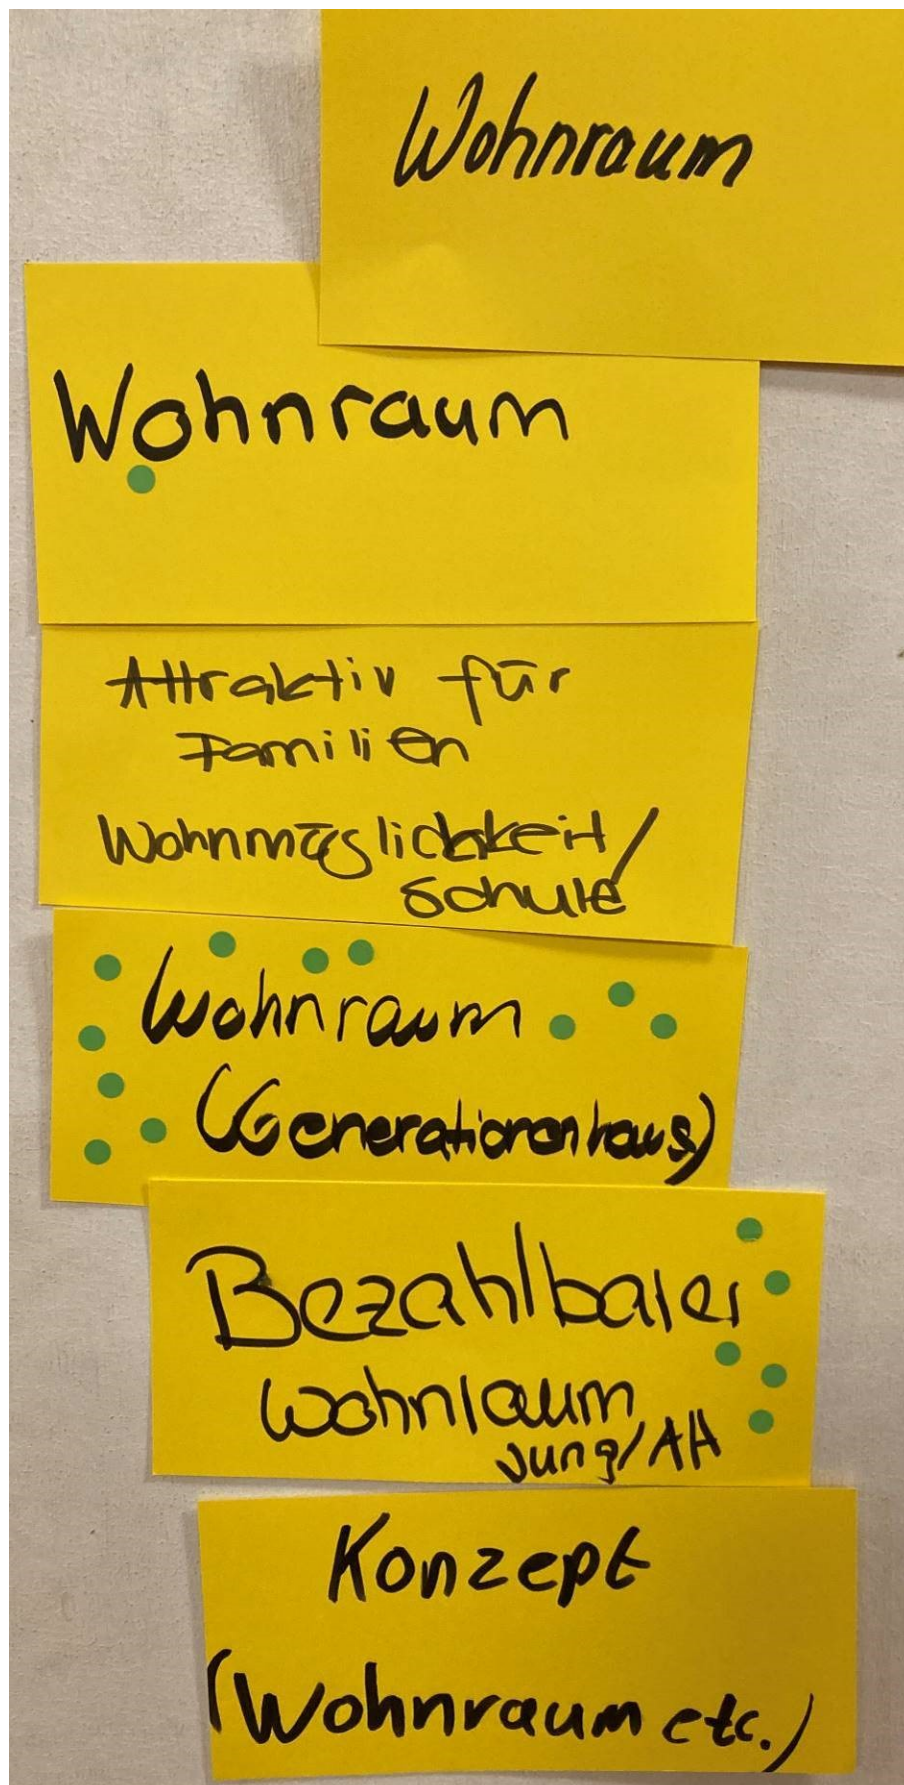 Wohnraum
Wohnraum
Attraktiv für
Familien
Wohnmöglichkeit/
Schule
Wohnraum
(Generationenhaus)
Bezahlbarer
Wohnraum
Jung/Alt
Konzept
(Wohnraum etc.)